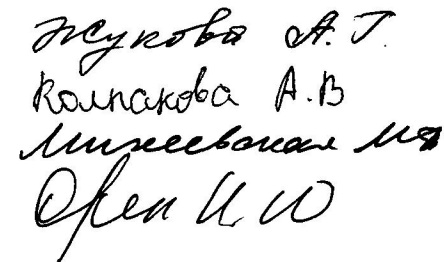 Жукова А.Г.
Колпакова А.В
Михеевская М
Орен И Ю